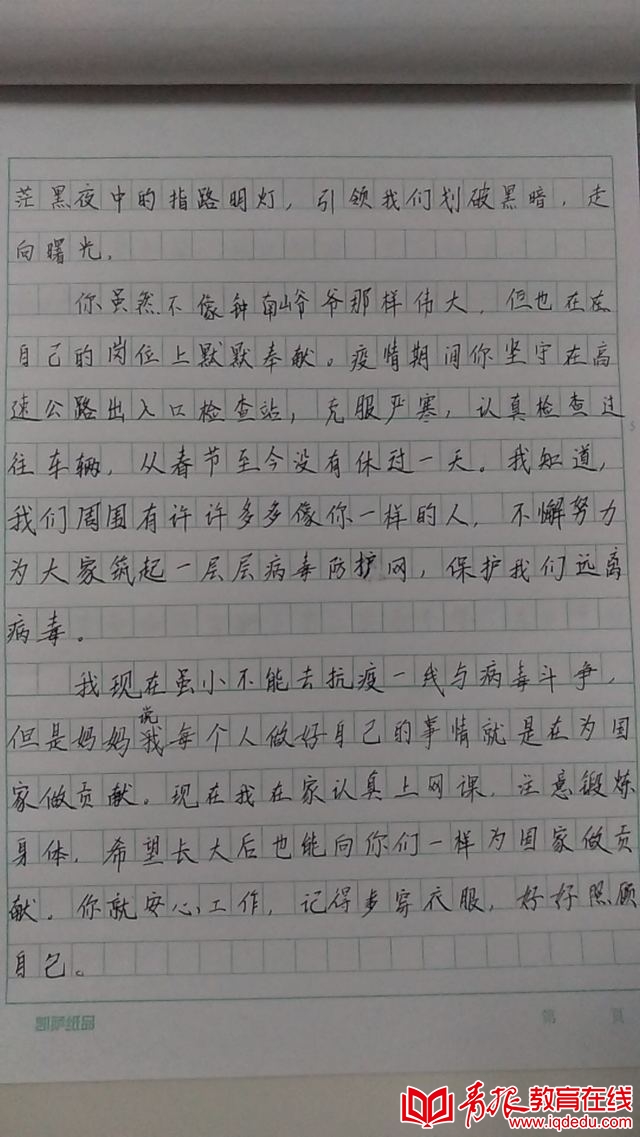 茫黑夜中的指路明灯，引领我们划破黑暗，走
向曙光。
你虽然不像钟南山爷爷那样伟大，但也在在
自己的岗位上默默奉献。疫情期间你坚守在高
速公路出入口检查站，克服严寒，认真检查过
往车辆，从春节至今没有休过一天。我知道，
我们周围有许许多多像你一样的人，不懈努力
为大家筑起一层层病毒防护网，保护我们远离
病毒。
我现在虽小不能去抗疫一线与病毒斗争，
但是妈妈说我每个人做好自己的事情就是在为国
家做贡献。现在我在家认真上网课，注意锻炼
身体，希望长大后也能向你们一样为国家做贡
献。你就安心工作，记得多穿衣服，好好照顾
自己。
第 页
青报教育在线
www.iqdedu.com